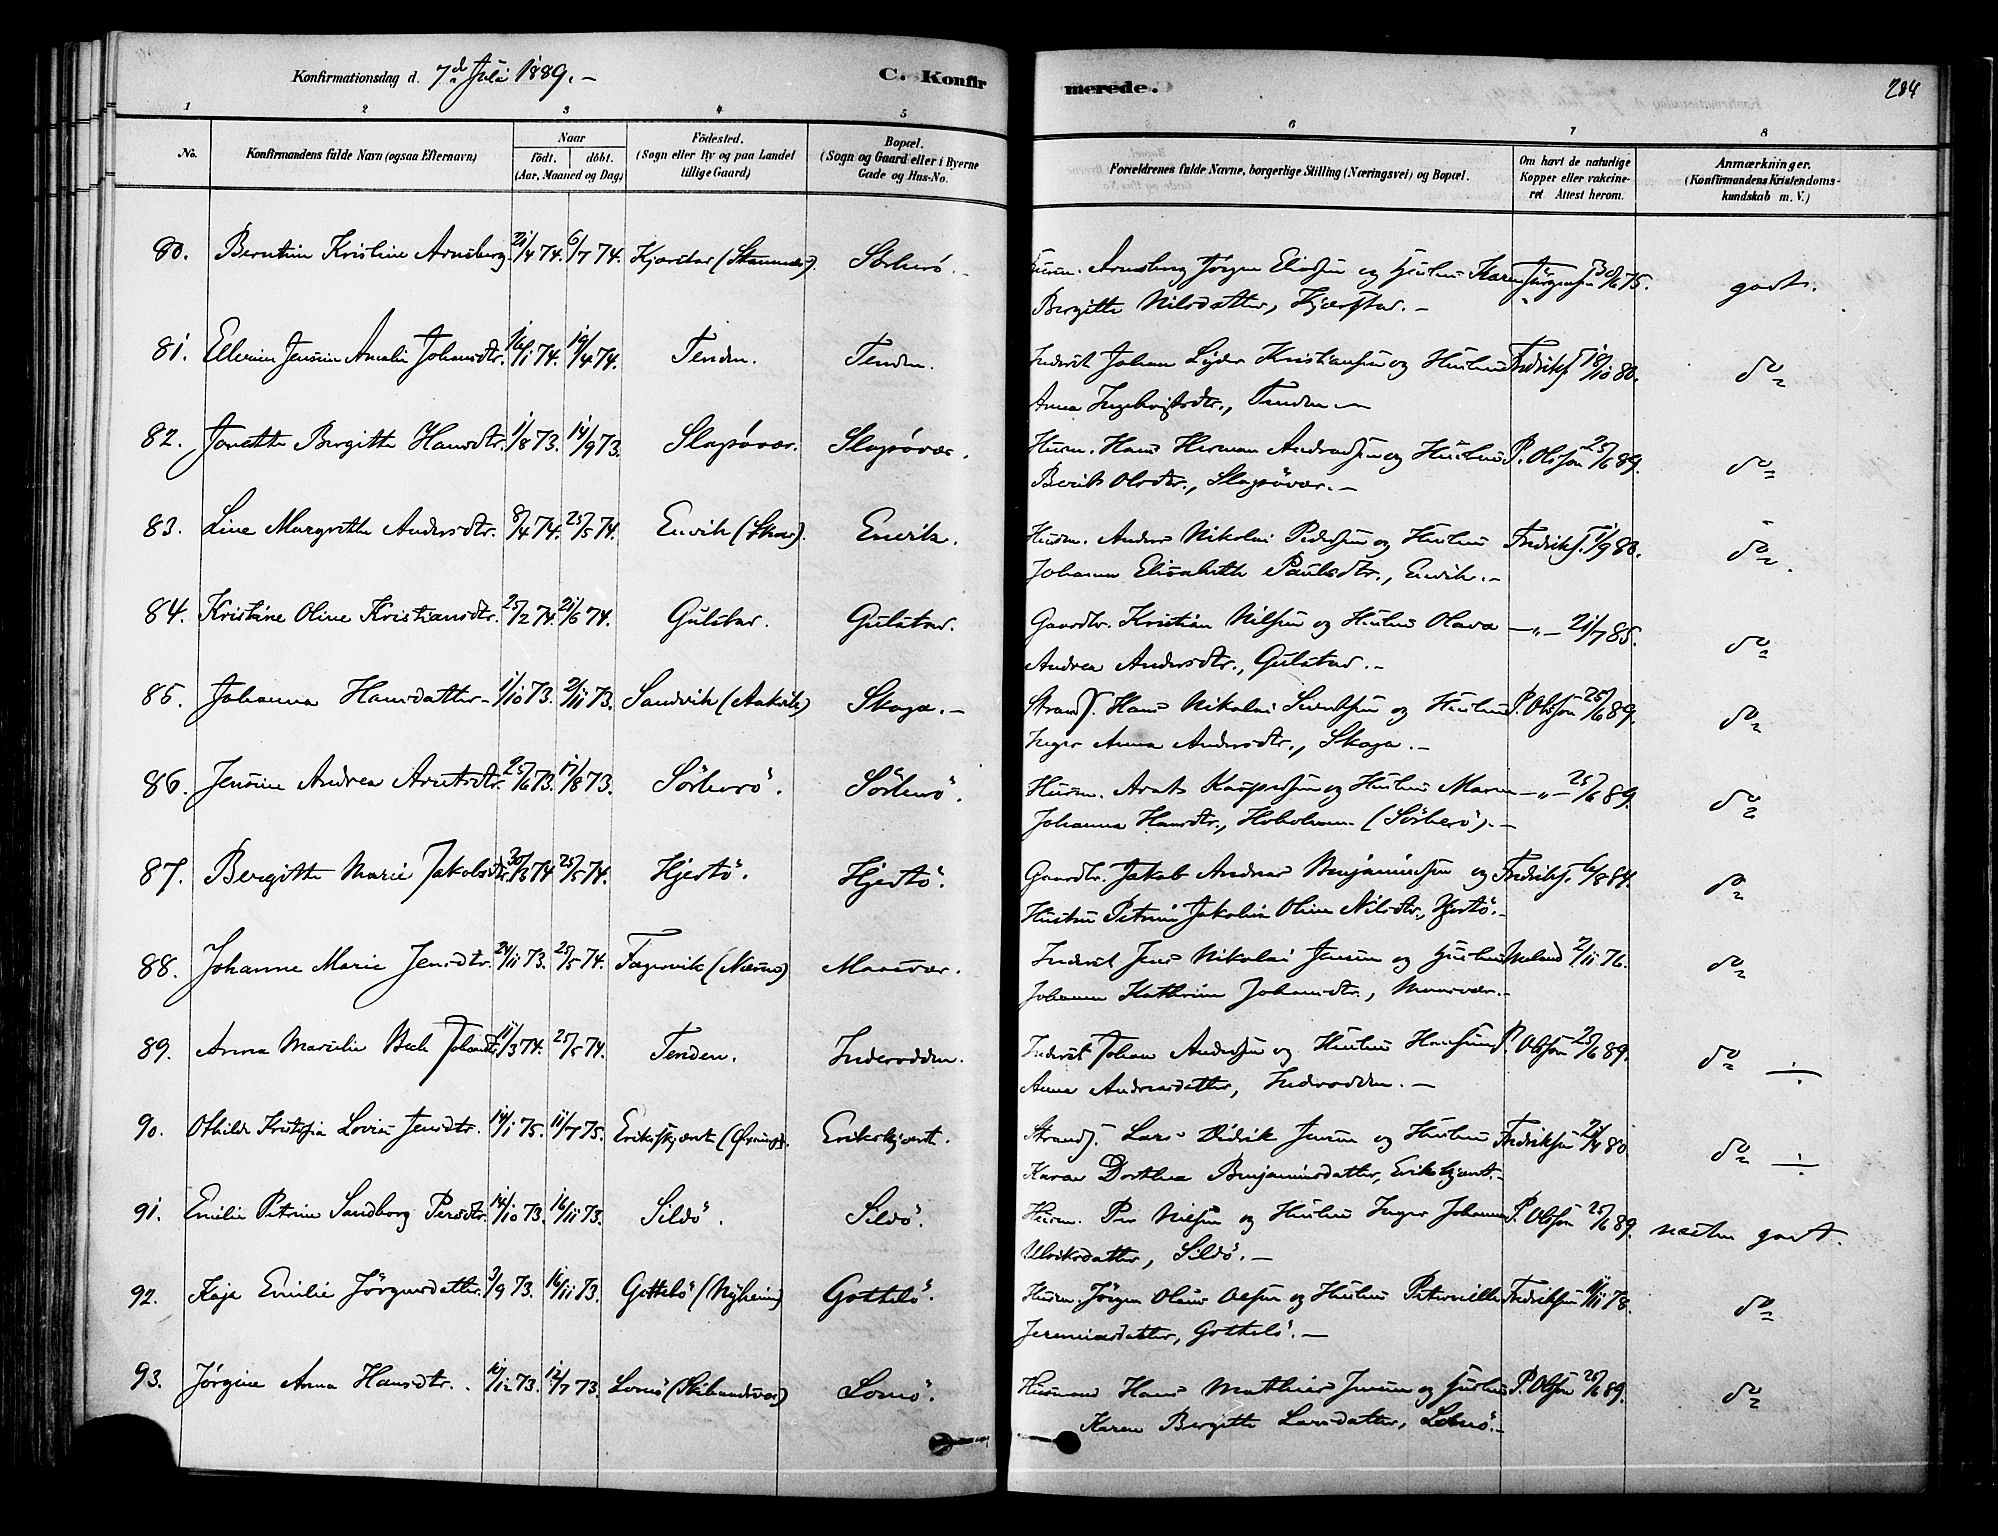 Konfirmationsdag d. 7d Juli 1889. –
C. Konfirmerede.
284
1 2 3 4 5 6 7 8
No.
Konfirmandens fulde Navn (ogsaa Efternavn)
Naar
födt. döbt.
(Aar, Maaned og Dag)
Födested.
(Sogn eller By og paa Landet
tillige Gaard)
Bopæl.
(Sogn og Gaard eller i Byerne
Gade og Hus-No.
Forældrenes fulde Navne, borgerlige Stilling (Næringsvei) og Bopæl.
Om havt de naturlige
Kopper eller vakcine-
ret Attest herom.
Anmærkninger.
(Konfirmandens Kristendoms-
kundskab m. V.)
80. Berntine Kristine Arnsberg 21/4 74. 6/7 74. Sörherö. Arnsberg Jörgen Eliassen og Hustru Karen 30/6 75. godt.
Bergitte Nilsdatter, Kjærstad. –
81. Ellevine Jensine Amalie Johansdtr. 16/1 74. 19/4 74. Tenden. Tenden. Inderst Johan Kristiansen og Hustru Fredriks. 18/10 80. do
Anna Ingebrigtsdtr., Tenden –
82. Jonette Bergitte Hansdtr. 1/8 73. 14/9 73. Slapövær. Slapövær. Husm. Hans Herman Andreassen og Hustru P. Olsson 25/6 89. do
Berit Olsdtr., Slapövær. –
83. Line Margrethe Andersdtr. 8/4 74. 25/5 74. Emvik Emvik. Husm. Anders Nikolai Pedersen og Hustru Fredriks. 1/9 80. do
Johanna Elisabeth Paulsdtr., Emvik. –
84. Kristine Oline Kristiansdtr. 25/2 74. 21/6 74. Gulstad. Gulstad. Gaardbr. Kristian Nilsen og Hustru Olava –„– 21/7 85. do
Andrea Andersdtr., Gulstad. –
85. Johanna Hansdatter – 1/10 73. 2/11 73. Sandvik (Aakvik) Skaga. – Strands. Hans Nikolai Svendsen og Hustru P. Olsson 25/6 89. do
Inger Anna Andersdtr., Skaga. –
86. Jensine Andrea Arntsdtr. 25/6 73. 17/8 73. Sörherö. Sörherö. Husm. Arnt Kaspersen og Hustru Maren –„– 25/6 89. do
Johanna Hansdtr., Hoholmen. (Sörherö). –
87. Bergitte Marie Jakobsdtr. 30/3 74 25/5 74. Hjertö. Hjertö. Gaardbr. Jakob Andreas Benjaminsen og Fredriks. 6/8 84. do
Hustru Petrine Jakobia Oline Nilsdtr., Hjertö. –
88. Johanne Marie Jensdtr. 24/11 73. 25/5 74. Fagervik Maasvær. Inderst Jens Nikolai Jensen og Hustru 2/11 76. do
Johanna Kathrine Johansdtr., Maasvær. –
89. Anna Marselie Bech Johansdtr. 11/3 74. 25/5 74. Tenden. Inderodden. Inderst Johan Andersen og Hustru P. Olsson 25/6 89. do ÷
Anna Andreasdatter, Inderodden. –
90. Othilde Kristofa Lovise Jensdtr. 14/1 75. 11/7 75. Erikskjæret Erikskjæret. Strands. Lars Didrik Jensen og Hustru Fredriksen 80. do ÷
Karen Dorthea Benjaminsdatter, Erikskjæret. –
91. Emilie Petrine Sandborg Persdtr. 14/10 73. 16/11 73. Sildö. Sildö. Husm. Per Nielsen og Hustru Inger Johanna P. Olsson 25/6 89. næsten godt.
Ulriksdatter, Sildö. –
92. Kaja Emilie Jörgensdatter. 3/9 73. 16/11 73. Gottelö (Nyheim) Gottelö. Husm. Jörgen Olaus Olsen og Hustru Petronelle Fredriksen 11/11 78. do
Jeremiasdatter, Gottelö. –
93. Jörgine Anna Hansdtr. 10/12 73. 12/7 73. Lomö Lomö. Husmand Hans Mathias Jensen og Hustru P. Olsson 25/6 89. do
Karen Bergitte Larsdatter, Lomö. –